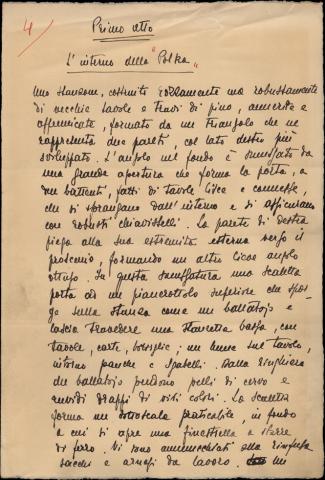 4)
Primo Atto
L'interno della "Polka"
Uno stanzone, costruito rozzamente ma robustamente
di vecchie tavole e travi di pino, annerite e
affumicate, formato da un triangolo che ne
rappresenta due pareti, col lato destro più
sviluppato. L'angolo nel fondo è smussato da
una grande apertura che forma la porta, a
due battenti, fatti di tavole lisce e connesse,
che si sprangano dall'interno e si assicurano
con robusti chiavistelli. La parete di destra
piega alla sua estremità esterna verso il
proscenio, formando un altro angolo
ottuso. In questa smussatura una scaletta
porta ad un pianerottolo superiore che spor-
ge sulla stanza come un ballatojo e
lascia travedere una stanzetta bassa, con
tavole, carte, bottiglie; un lume sul tavolo,
intorno panche e sgabelli. Dalla ringhiera
del ballatojo pendono pelli di cervo e
ruvidi drappi di vivi colori. La scaletta
forma un sottoscala praticabile, in fondo
a cui si apre una finestrella a sbarre
di ferro. Vi sono ammucchiati alla rinfusa
sacchi e arnesi da lavoro. Un